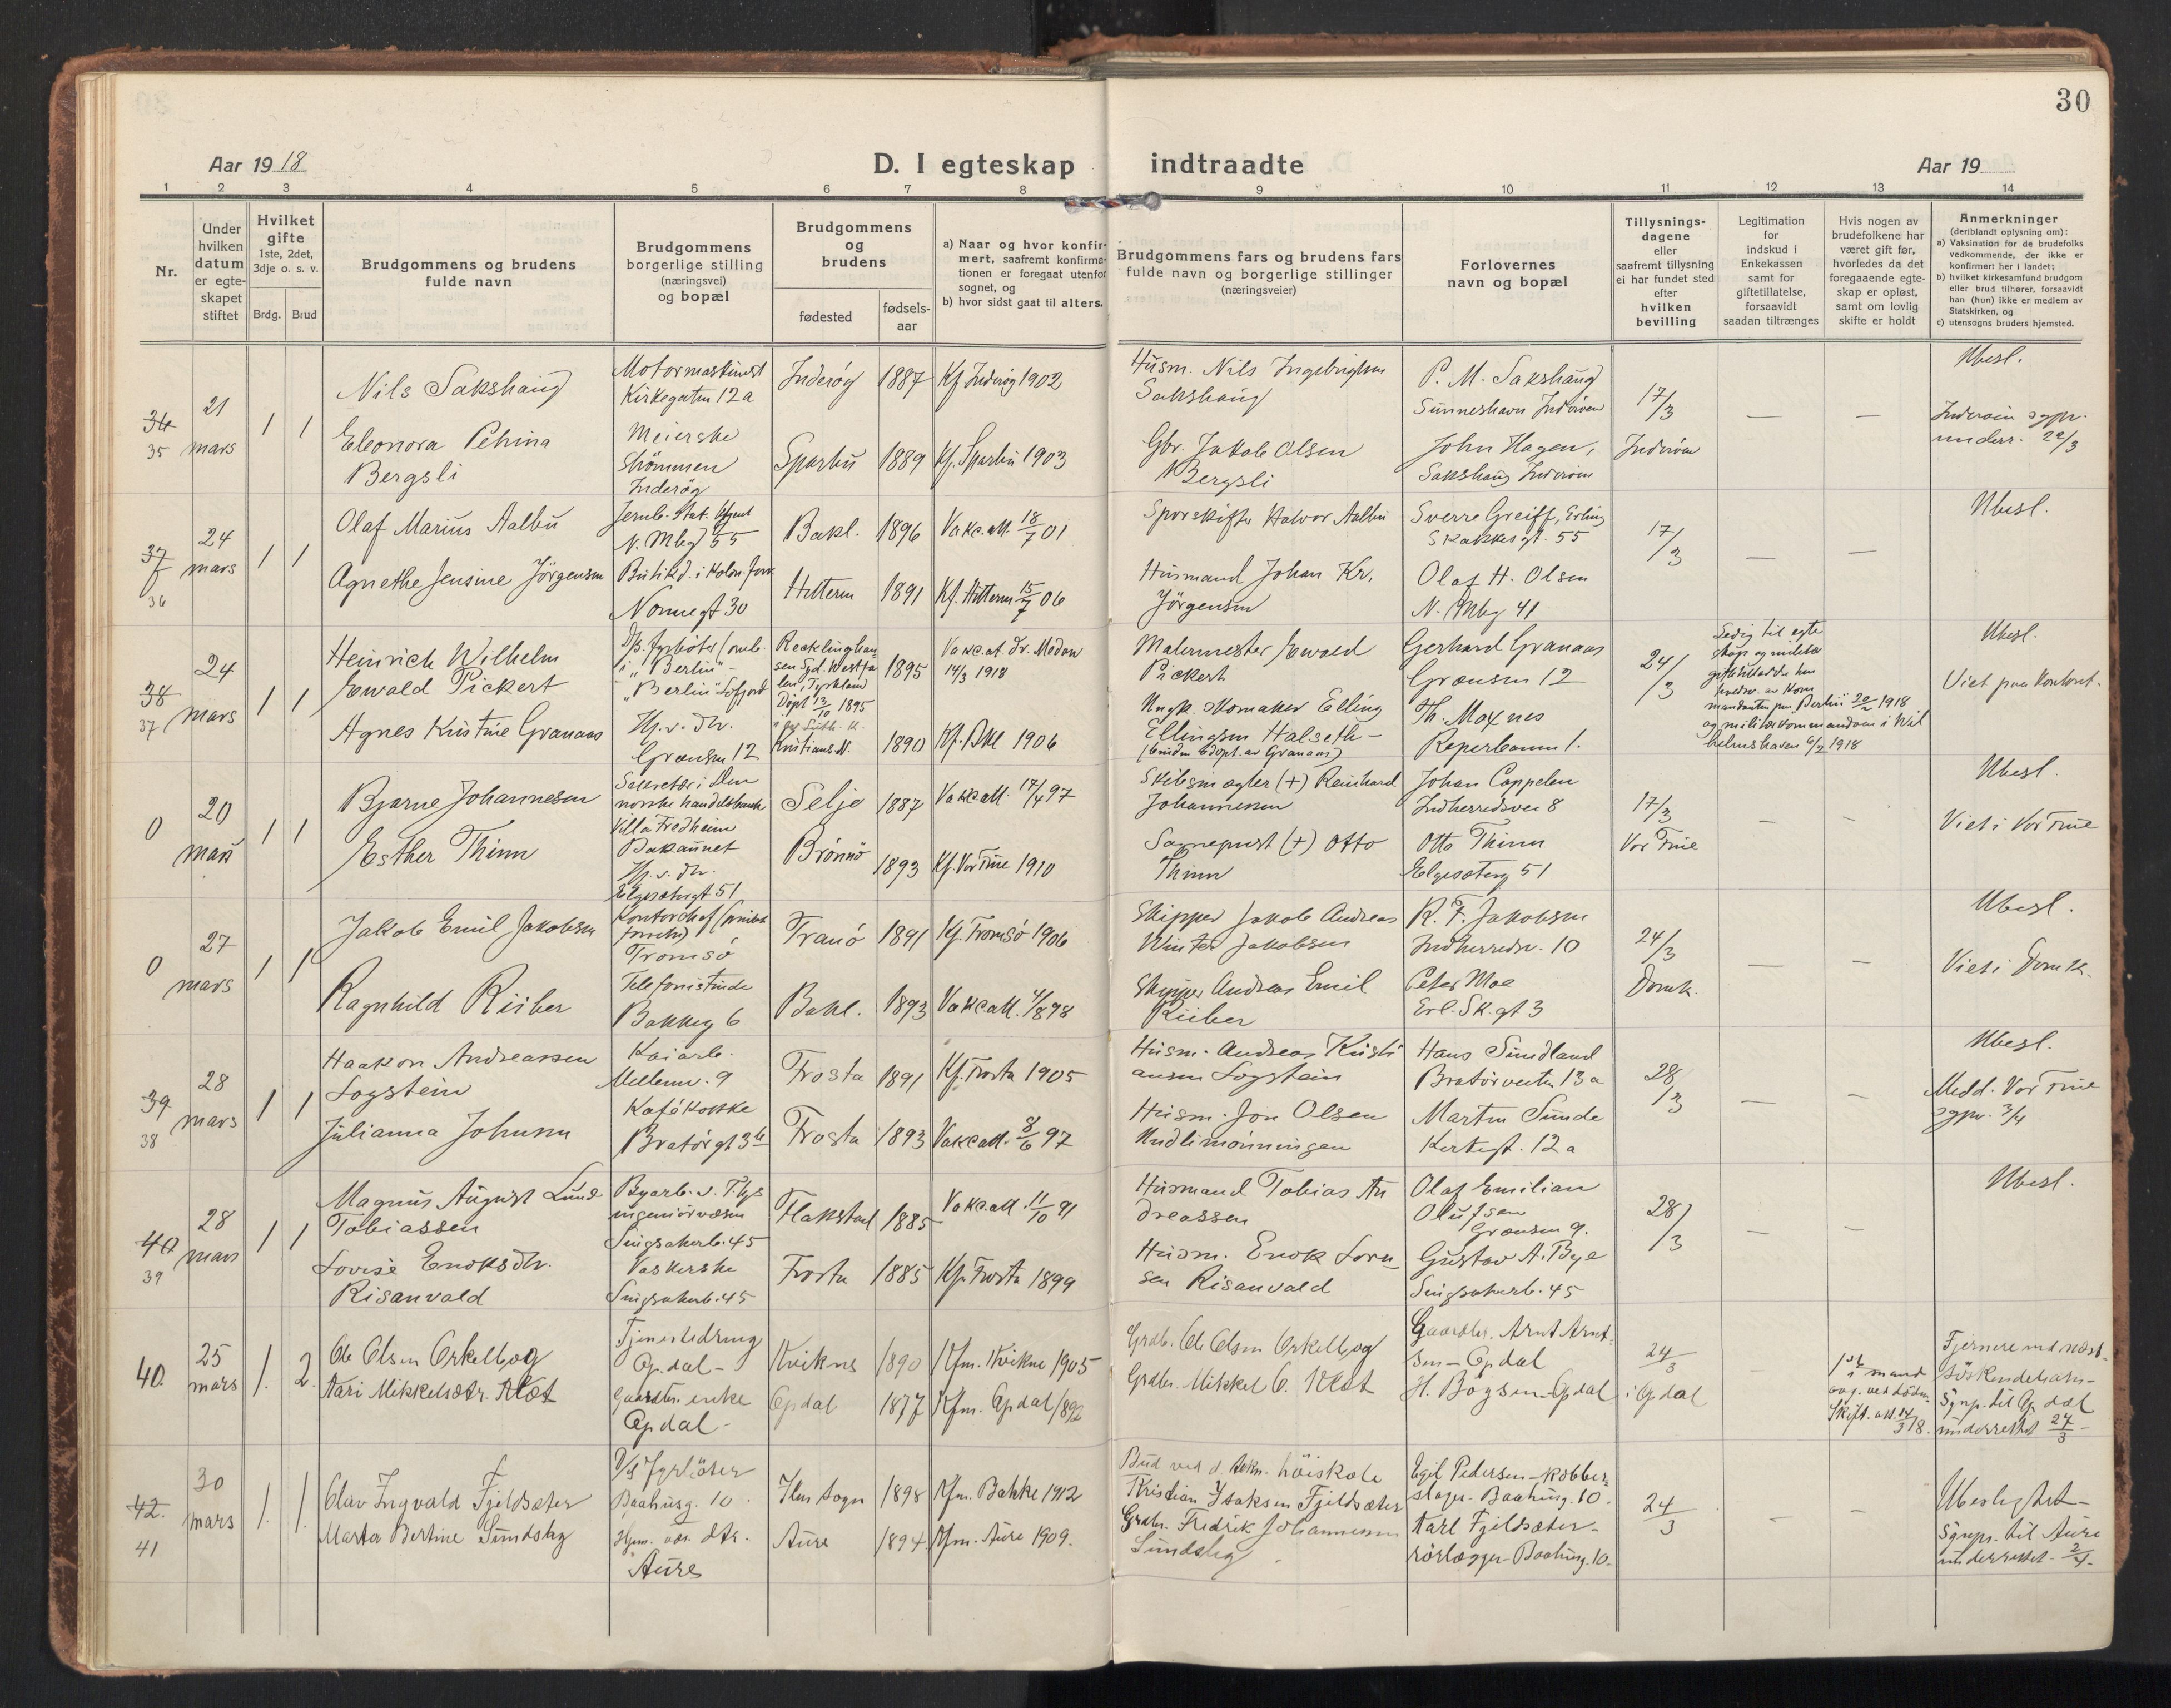 30
Aar 1918
D. I egteskap indtraadte
Aar 19
1 2 3 4 5 6 7 8 9 10 11 12 13 14
Nr.
Under hvilken datum er egteskapet stiftet
Hvilket gifte 1ste, 2det, 3dje o. s. v.
Brdg. Brud
Brudgommens og brudens fulde navn
Brudgommens borgerlige stilling (næringsvei) og bopæl
Brudgommens og brudens
fødested
fødselsaar
a) Naar og hvor konfirmert, saafremt konfirmationen er foregaat utenfor sognet, og
b) hvor sidst gaat til alters.
Brudgommens fars og brudens fars fulde navn og borgerlige stillinger (næringsveier)
Forlovernes navn og bopæl
Tillysningsdagene eller saafremt tillysning ei har fundet sted efter hvilken bevilling
Legitimation for indskud i Enkekassen samt for giftetillatelse, forsaavidt saadan tiltrænges
Hvis nogen av brudefolkene har været gift før, hvorledes da det foregaaende egteskap er opløst, samt om lovlig skifte er holdt
Anmerkninger (deriblandt oplysning om):
a) Vaksination for de brudefolks vedkommende, der ikke er konfirmert her i landet;
b) hvilket kirkesamfund brudgom eller brud tilhører, forsaavidt han (hun) ikke er medlem av Statskirken, og
c) utensogns bruders hjemsted.
36
35
21 mars
1 1
Nils Sakshaug
Motormaskinist
Kirkegaten 12a
Inderøy 1887 Kf. Inderøy 1902
Husm. Nils Ingebrigtsen
Sakshaug
P. M. Sakshaug
Sunneshavn Inderøen
17/3
Inderøen
—
—
Ubesl.
Inderøen sgpr.
underr. 22/3
Eleonora Pehina
Bergsli
Meierske
Strømmen
Inderøy
Sparbu 1889 Kf. Sparbu 1903
Gbr. Jakob Olsen
Bergsli
John Hagen,
Sakshaug Inderøen
37
36
24 mars
1 1
Olaf Marius Aalbu
N. Mbg 55
Bakl. 1896 Vakc.att. 18/7 01
Sporskifter Halvor Aalbu
Sverre Greiff, Erling
Skakkesgt. 55
17/3
—
—
Ubesl.
Agnethe Jensine Jörgensen
Butikd. i Kolon. forr.
Nonnegt 30
Hitteren 1891 Kf. Hitteren 15/7 06
Husmand Johan Kr.
Jörgensen
Olaf H. Olsen
N. Mbg 41
38
37
24 mars
1 1
Heinrich Wilhelm
Ewald Pickert
D/s. fyrbøter
i "Berlin" –
"Berlin" Lofjord
Recklinghausen Syd. Westfalen, Tyskland
Døpt 13/10 1895
1895
Vakc.at. dr. Modan
14/3 1918
Malermester Ewald
Pickert
Gerhard Granaas
Grænsen 12
24/3
Ledig til egteskap og militær
giftetilladelse
mandanten paa "Berlin" 20/2 1918
og militærkommandoen i Wilhelmshaven 6/2 1918
Ubesl.
Viet paa kontoret.
Agnes Kristine Granaas
Hp. v. dr.
Grænsen 12
Kristians. N. 1890 Kf. Bkl 1906
Ungk. skomaker Elling
Ellingsen Halseth –
(bruden adopt. av Granaas)
Th. Moxnes
Reperbanen 1.
0
20 mars
1 1
Bjarne Johannesen
Sekretær i Den
norske handelsbank
Villa Fredheim
Bakaunet
Selje 1887 Vakc.att. 17/4 97
Skibsmægler (+) Reinhard
Johannesen
Johan Cappelen
Indherredsvei 8
17/3
Vor Frue
—
—
Ubesl.
Viet i Vor Frue
Esther Thinn
Hp. v. dr.
Elgesætergt 51
Brönnö 1893 Kf. Vor Frue 1910
Sogneprest (+) Otto
Thinn
Otto Thinn
Elgesæterg 51
0
27 mars
1 1
Jakob Emil Jakobsen
Kontorchef
Tromsö
Tranö 1891 Kf. Tromsö 1906
Skipper Jakob Andreas
Winter Jakobsen
R. F. Jakobsen
Indherredsv. 10
24/3
Domk.
—
—
Ubesl.
Viet i Domk.
Ragnhild Riiber
Telefonistinde
Bakkeg 6
Bakl. 1893 Vakc.att. 4/8 98
Skipper Andreas Emil
Riiber
Peter Moe
Erl. Sk. gt 3
39
38
28 mars
1 1
Haakon Andreassen
Logstein
Kaiarb.
Mellemv. 9
Frosta 1891 Kf. Frosta 1905
Husm. Andreas Kristiansen Logstein
Hans Sundland
Bratörveiten 13a
28/3
—
—
Ubesl.
Medd. Vor Frue
sgpr. 3/4
Julianna Johnsen
Kafékokke
Bratörgt 3b
Frosta 1893 Vakc.att. 8/6 97
Husm. Jon Olsen
Undlimönningen
Martin Sunde
Kirkegt. 12a
40
39
28 mars
1 1
Magnus August Lund
Tobiassen
Byarb. v. Thjs
ingeniørvæsen
Singsakerb. 45
Flakstad 1885 Vakc.att. 11/10 91
Husmand Tobias Andreassen
Olaf Emilian
Olufsen
Grænsen 9.
28/3
—
—
Ubesl.
Lovise Enoksdtr.
Risanvald
Vaskerske
Singsakerb. 45
Frosta 1885 Kf. Frosta 1899
Husm. Enok Lornsen Risanvald
Gustav A. Bye
Singsakerb. 45
40.
25 mars
1. 2.
Ole Olsen Orkelbog
Tjenestedreng
Opdal –
Kvikne 1890 Kfm. Kvikne 1905
Grdbr. Ole Olsen Orkelbog
Gaardbr. Arnt Arntsen – Opdal
24/3
i Opdal
—
1ste mand
Skift. att. 14/3 18.
Fjernere end næstsöskendebarn –
Sgnp. til Opdal
underrettet 27/3 –
Kari Mikkelsdtr. Klæt
Gaardbr. enke
Opdal –
Opdal 1877 Kfm. Opdal 1892
Grdbr. Mikkel O. Klæt
H. Bøgsen – Opdal
42.
41
30 mars
1. 1.
Olav Ingvald Fjeldsæter
D/s fyrböter
Baahusg. 10.
Ilen sogn 1898 Kfm. Bakke 1912
Bud ved d. tekn. höiskole
Kristian Isaksen Fjeldsæter
Egil Pedersen – kobberslager – Baahusg. 10.
24/3
—
—
Ubeslegtet –
Sgnpr. til Aure
underrettet – 2/4 –
Marta Bertine Sundsleg
Hjem. vær. dtr.
Aure
Aure 1894. Kfm. Aure 1909.
Grdbr. Fredrik Johannessen
Sundsleg
Karl Fjeldsæter –
rörlægger – Baahusg. 10.